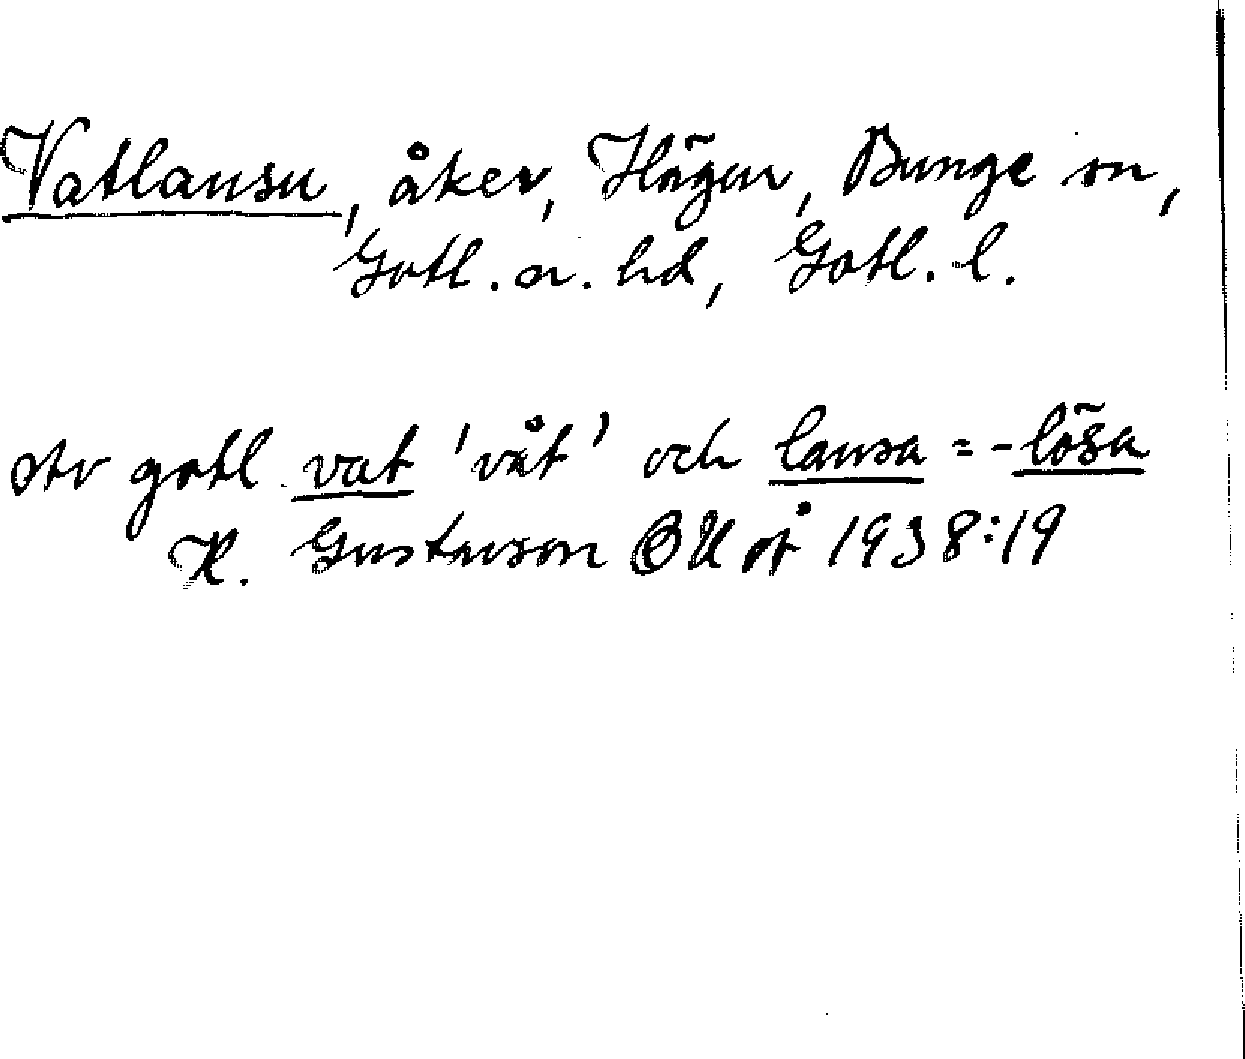 Vatlausu, åker, Hägur, Bunge sn,
Gotl. n. hd, Gotl. l.
Av gotl. vat 'våt' och lausa = -lösa
H. Gustavson OUÅ 1938:19